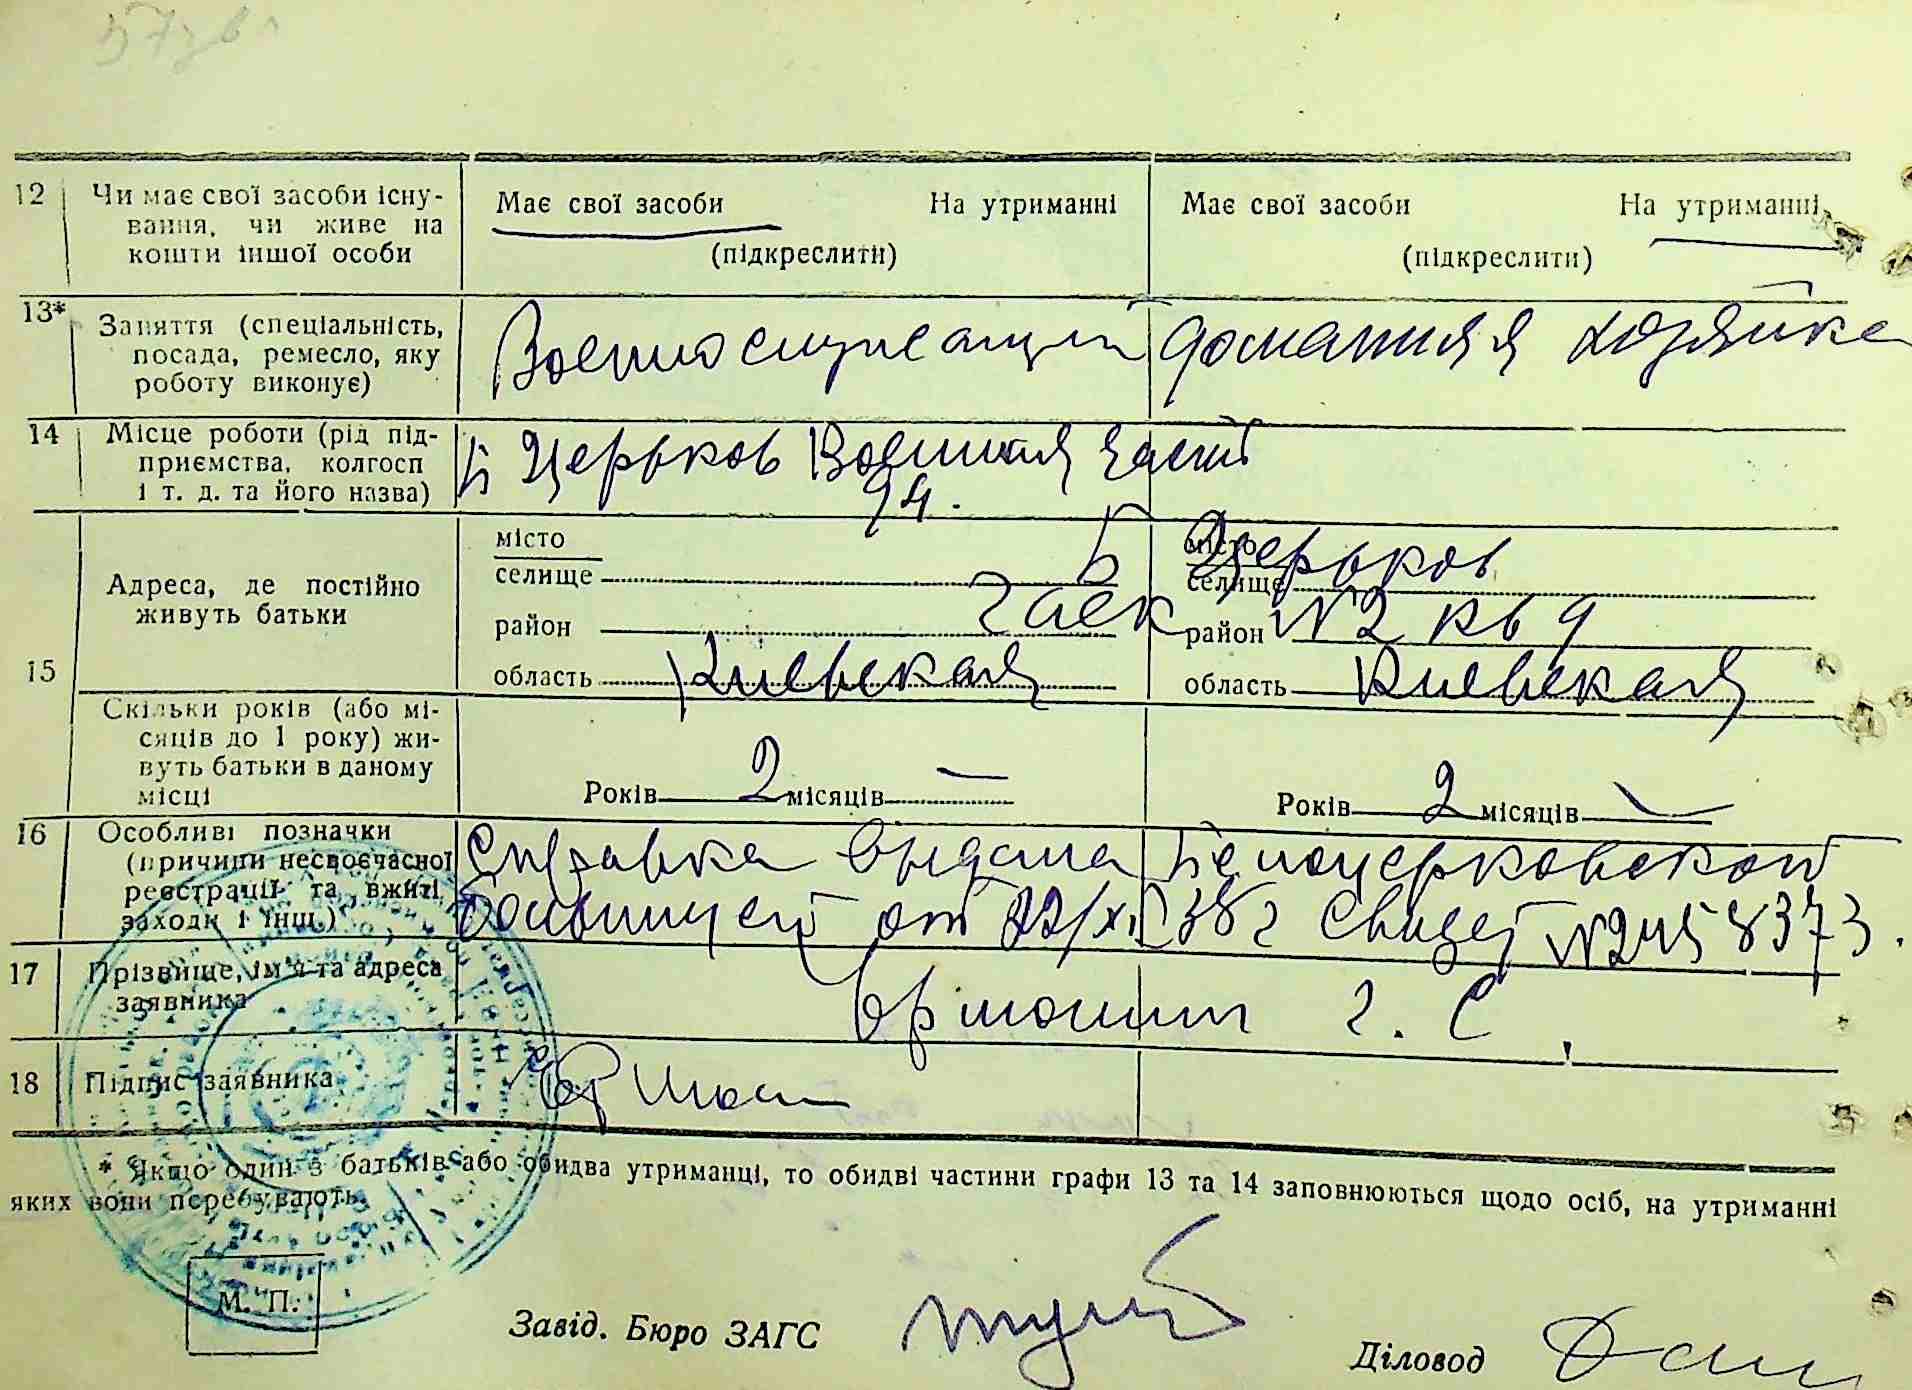 12 Чи має свої засоби існу- Має свої засоби На утриманні Має свої засоби На утриманні
вання, чи живе на
кошти іншої особи (підкреслити) (підкреслити)
13* Заняття (спеціальність,
посада, ремесло, яку Военнослужащий домашняя хозяйка
роботу виконує)
14 Місце роботи (рід під- Б Церьков Военная часть
приємства, колгосп
і т. д. та його назва) 94.
місто місто
селище Б Церьков селище
Адреса, де постійно
живуть батьки
район Гаек район №2 кв 9
15 область Киевская область Киевская
Скільки років (або мі-
сяців до 1 року) жи-
вуть батьки в даному
місці Років 2 місяців — Років 2 місяців —
16 Особливі позначки
(причини несвоєчасної Справка выдана Белоцерковской
реєстрації та вжиті больницей от 22/XII 38 г Свидет №2458373.
заходи і інш.)
17 Прізвище, ім'я та адреса
заявника г. С
18 Підпис заявника
* Якщо один з батьків або обидва утриманці, то обидві частини графи 13 та 14 заповнюються щодо осіб, на утриманні
яких вони перебувають.
М. П.
Завід. Бюро ЗАГС
Діловод